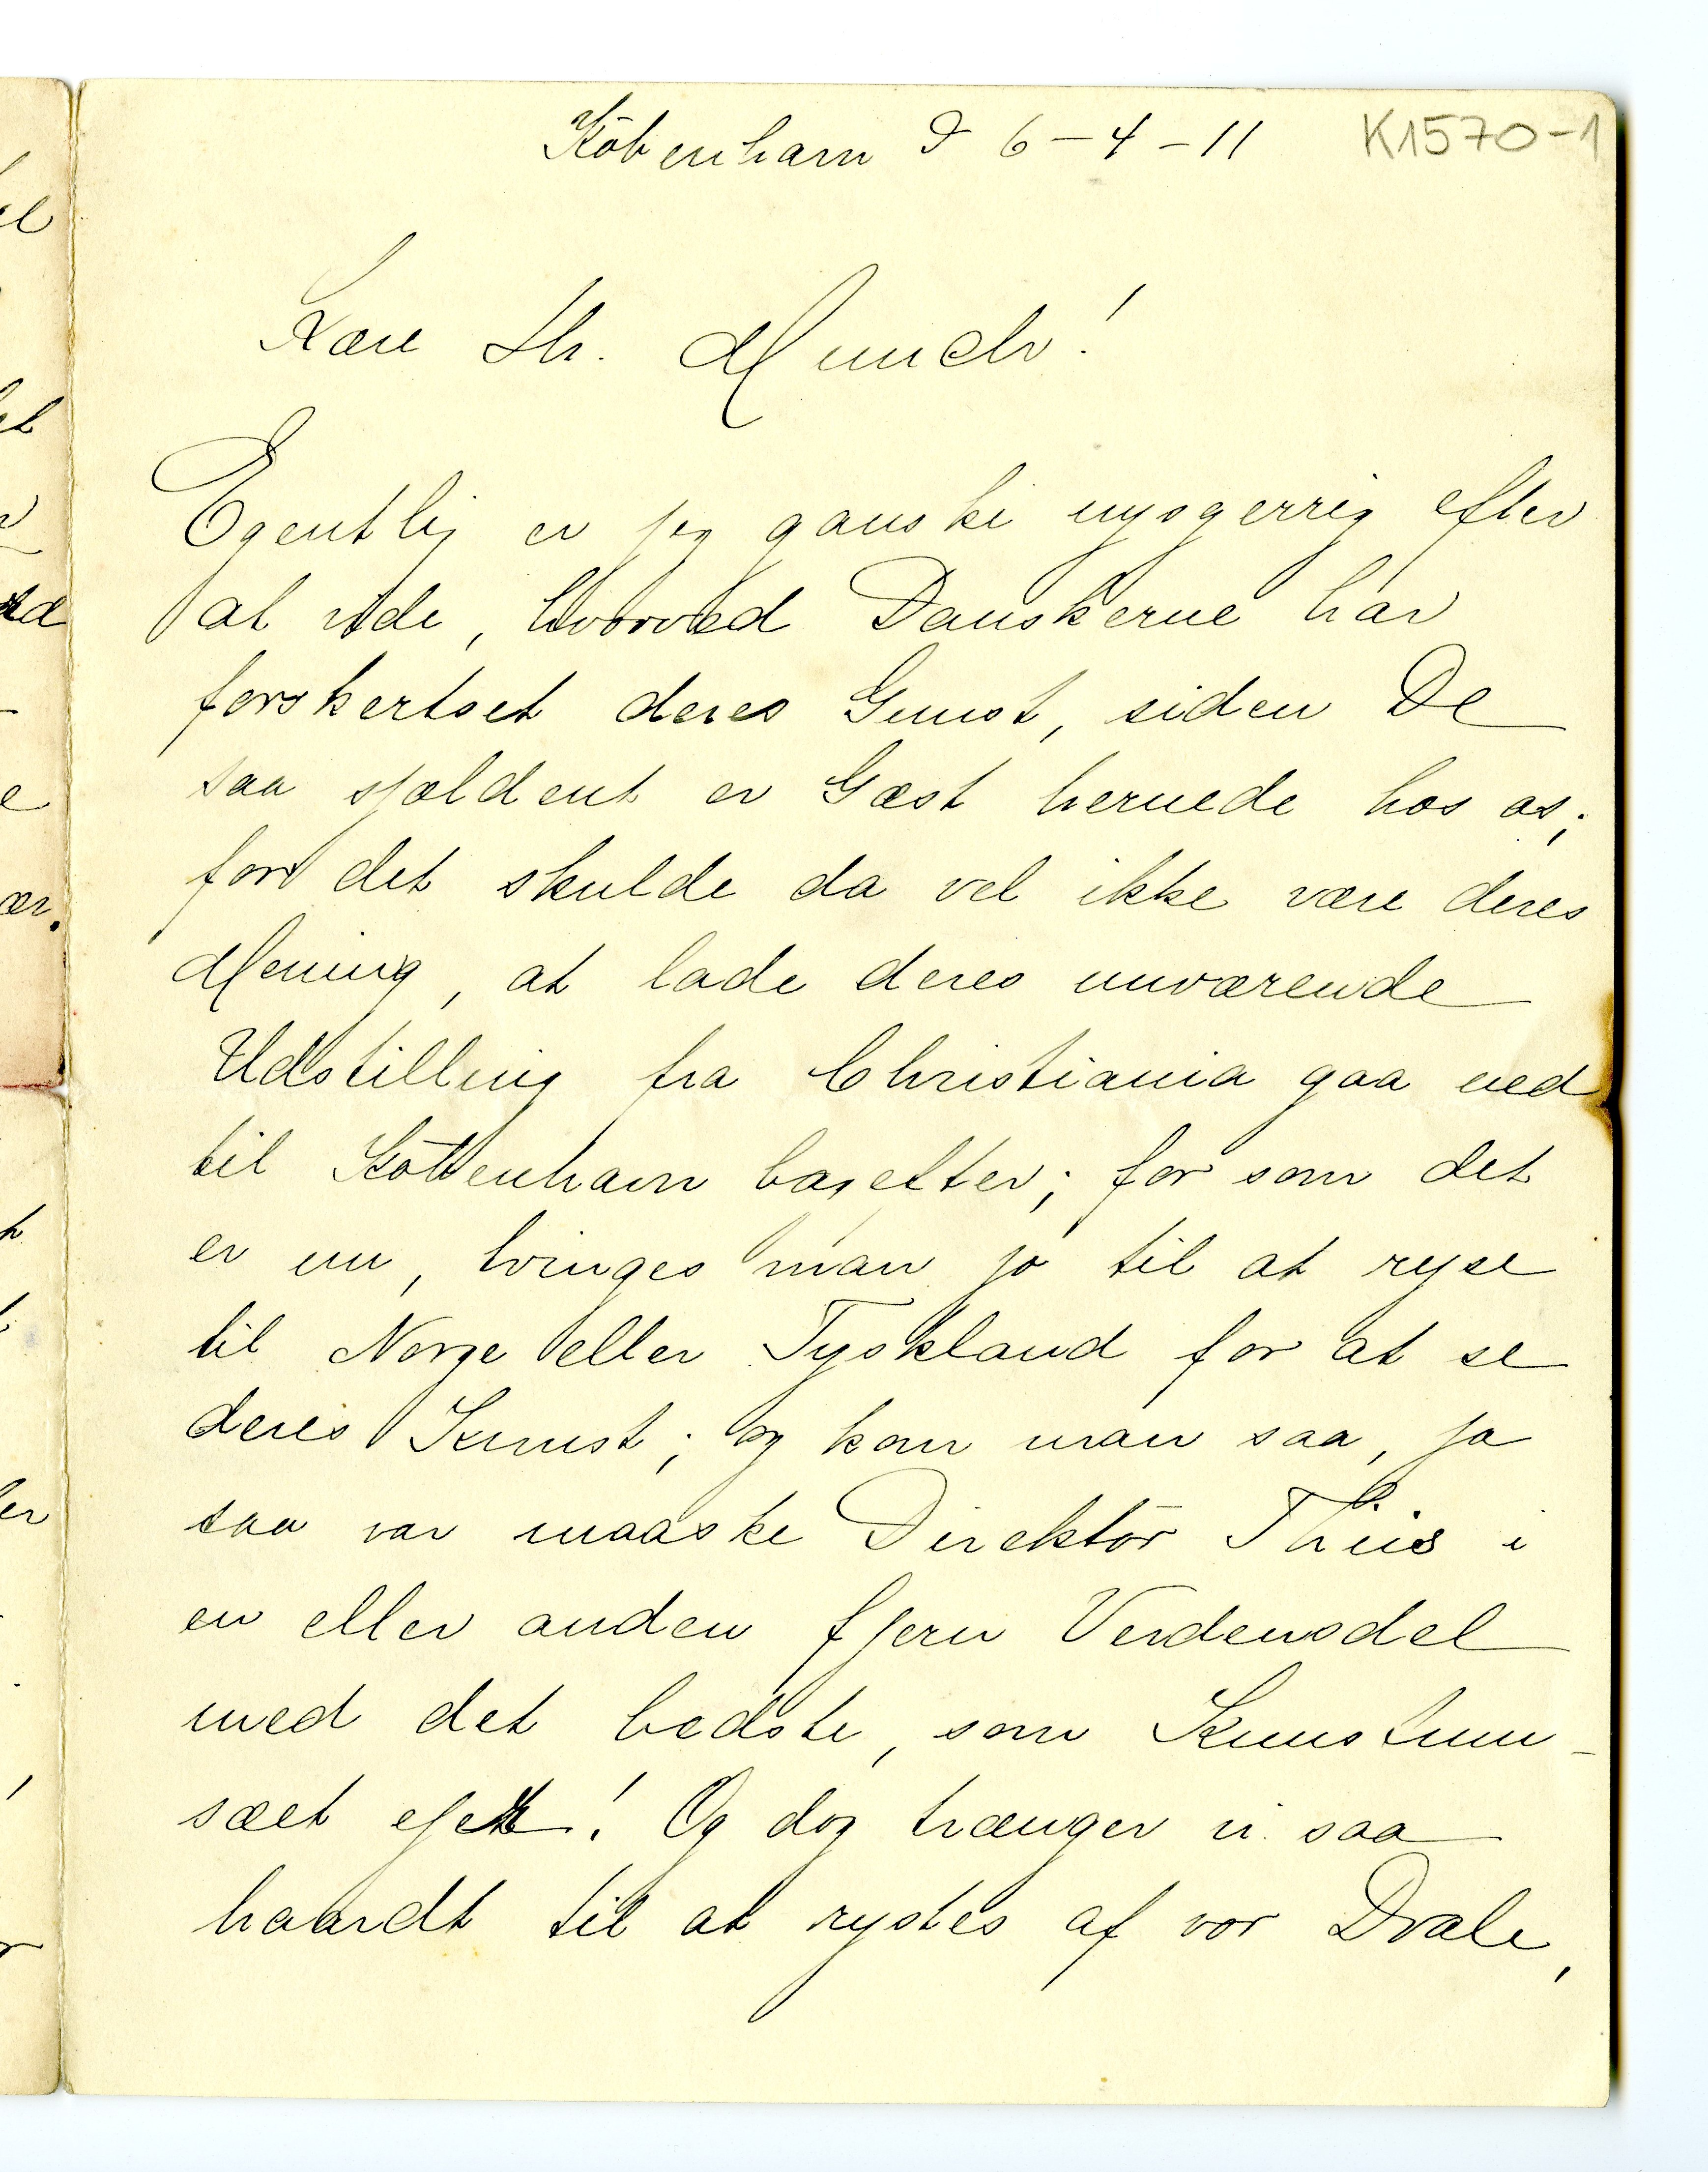 København d 6-4-11
K1570-1
Kære Hr. Munch!
Egentlig er jeg ganske nysgerrig efter
at vide, hvorved Danskerne har
forskertset deres Gunst, siden De
saa sjældent er Gæst hernede hos os;
for det skulde da vel ikke være deres
Mening, at lade deres nuværende
Udstilling fra Christiania gaa ned
til København bagefter; for som det
er nu, tvinges man jo til at rejse
til Norge eller Tyskland for at se
deres Kunst; og kom man saa, ja
saa var maaske Direktør Thiis i
en eller anden fjern Verdensdel
med det bedste, som Kunstmu-
sæet ejer! Og dog trænger vi saa
haardt til at rystes af vor Dvale,